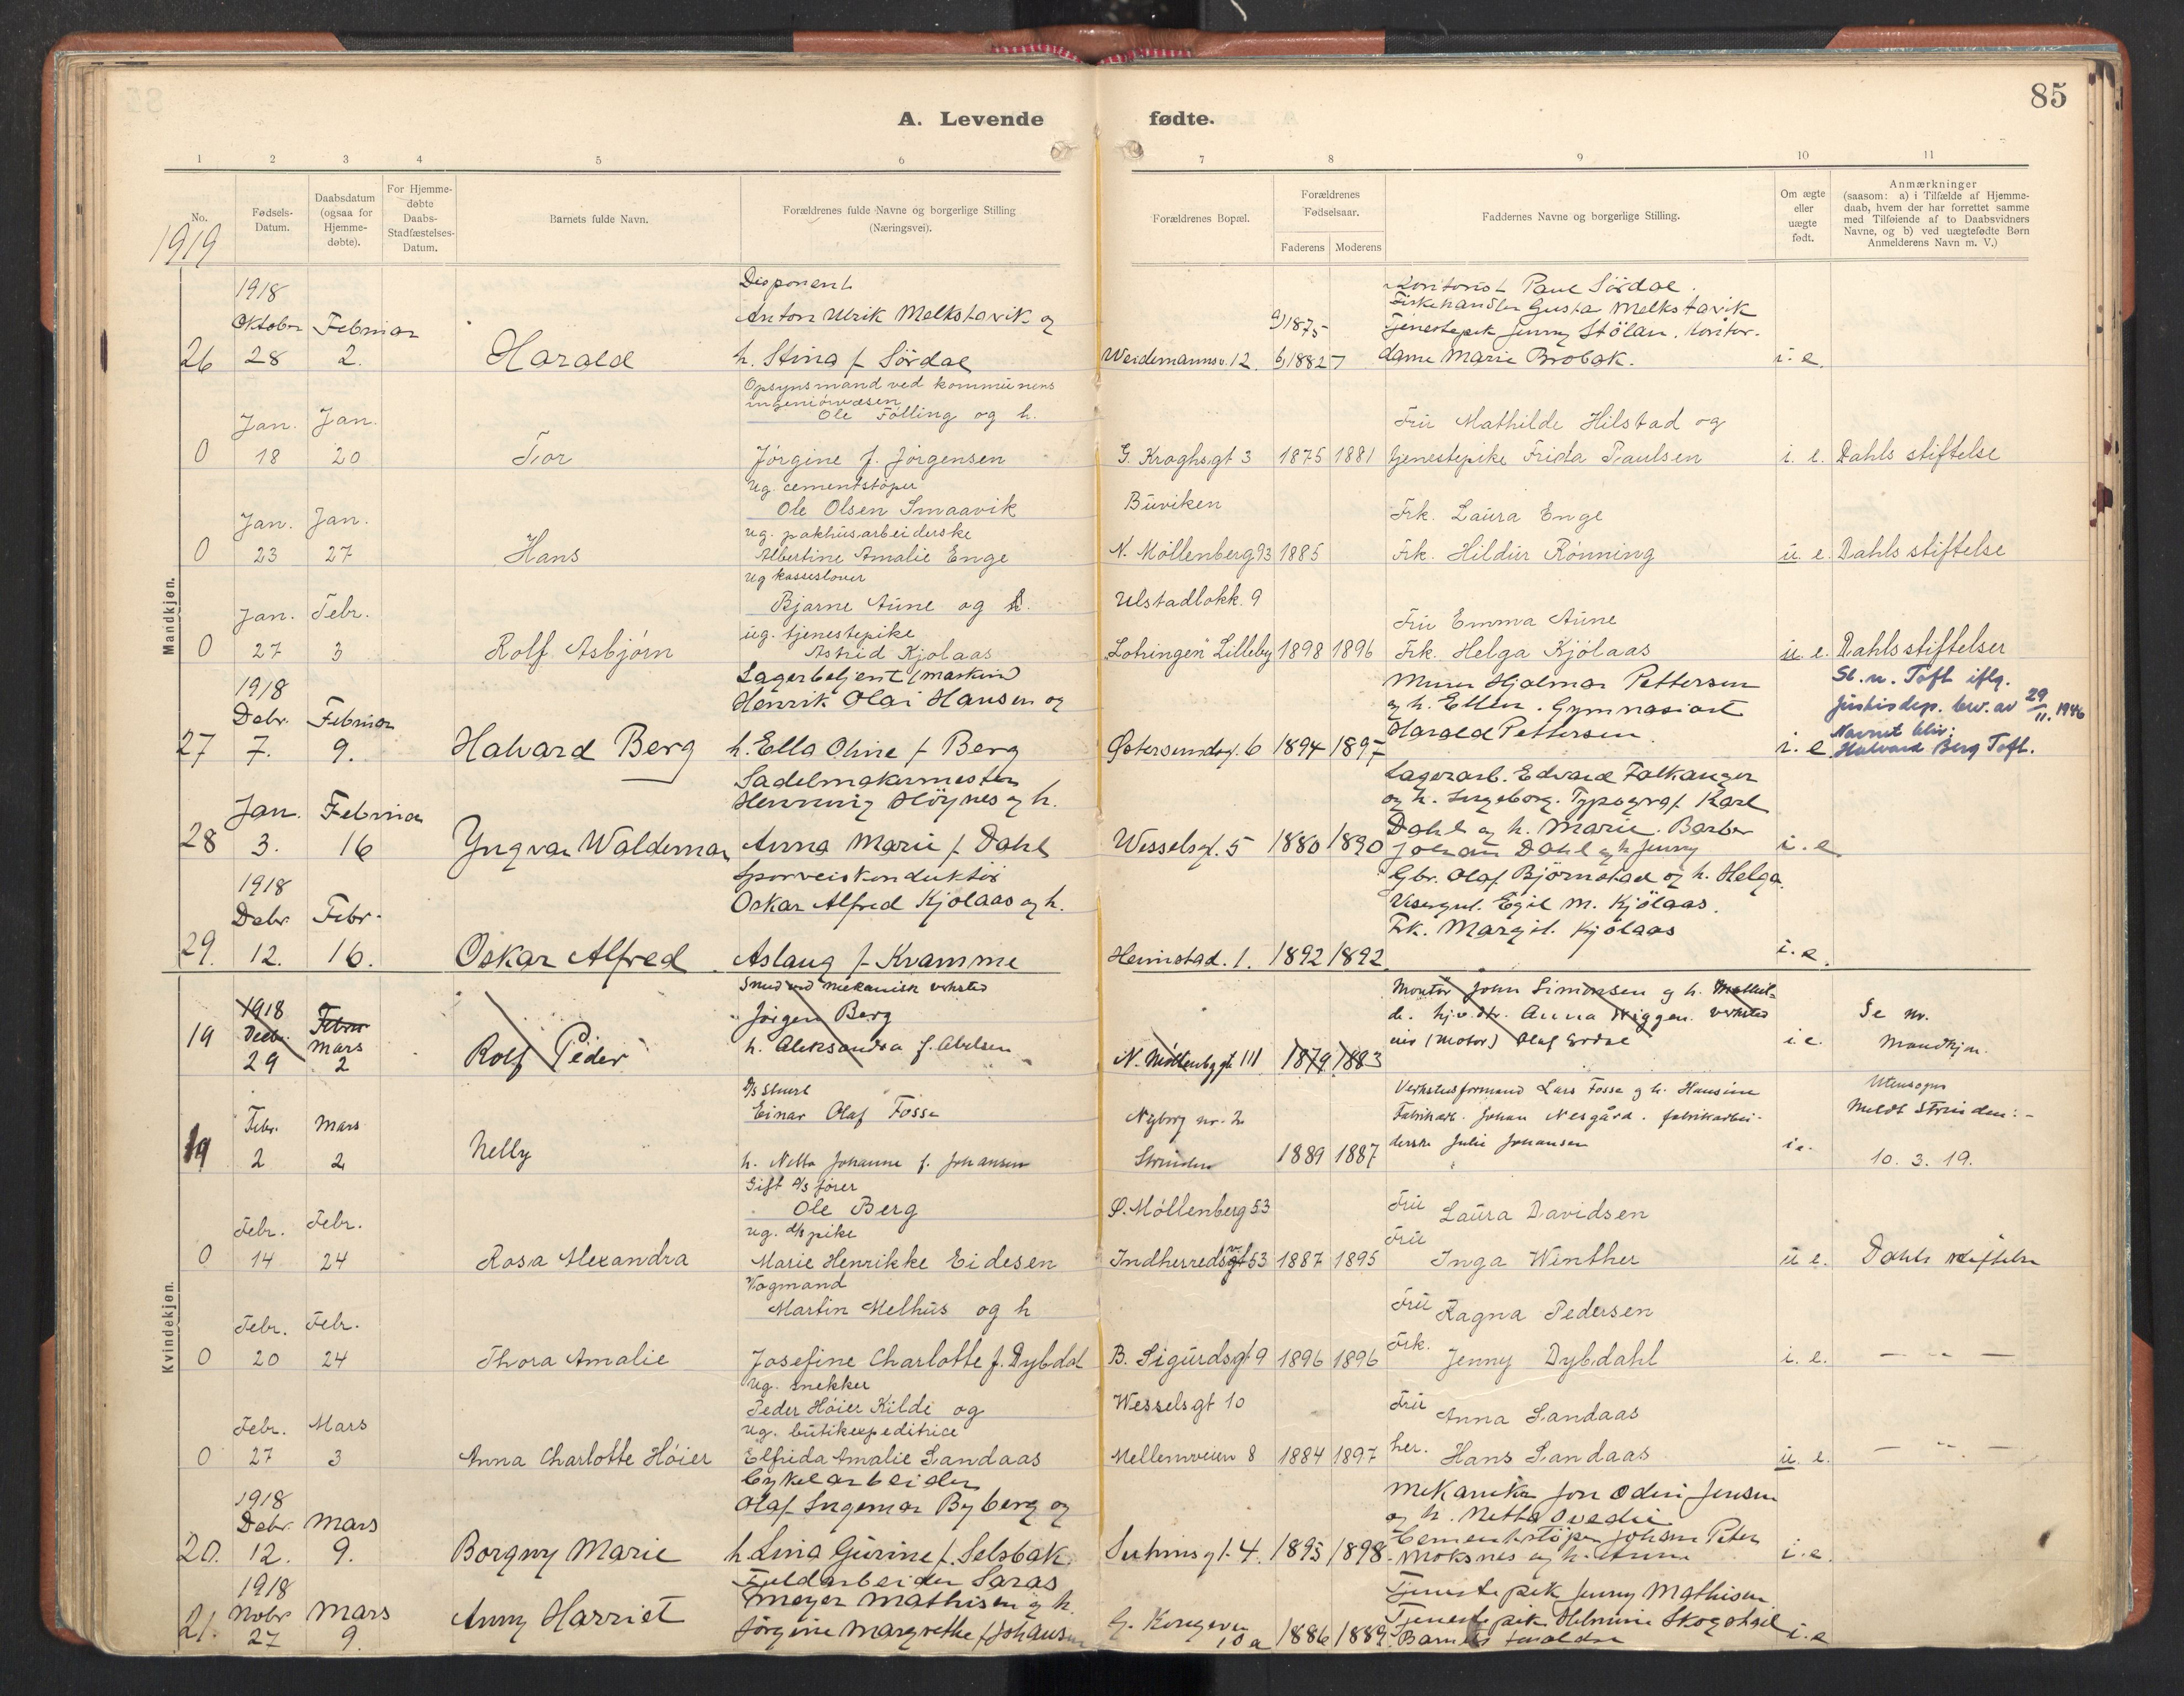 85
A. Levende fødte.
1 2 3 4 5 6 7 8 9 10 11
No.
Fødsels-Datum.
Daabsdatum (ogsaa for Hjemme-døbte).
For Hjemme-døbte Daabs-Stadfæstelses-Datum.
Barnets fulde Navn.
Forældrenes fulde Navne og borgerlige Stilling (Næringsvei).
Forældrenes Bopæl.
Forældrenes Fødselsaar.
Faderens Moderens
Faddernes Navne og borgerlige Stilling.
Om ægte eller uægte født.
Anmærkninger
(saasom: a) i Tilfælde af Hjemme-
daab, hvem der har forrettet samme
med Tilføiende af to Daabsvidners
Navne, og b) ved uægtefødte Børn
Anmelderens Navn m. V.)
1919
Mandkjøn.
1918 Disponent Kontorist Paul Sördal.
Oktober Februar Anton Ulrik Melkstavik og 1875 Fiskehandler Gusta Melkstavik
Tjenestepik Jenny Stölan. Kontor-
26 28 2. Harald h. Stina f. Sördal Weidemannsv. 12. 1882 dame Marie Brobak. i. e.
Opsynsmand ved kommunens
ingeniörvæsen
Jan. Jan. Ole Fölling og h. Fru Mathilde Hilstad og
0 18 20 Tor Jörgine f. Jörgensen G. Kroghsgt 3 1875 1881 tjenestepike Frida Paulsen i. e. Dahls stiftelse
Ug. cementstöper
Jan. Jan. Ole Olsen Smaavik Buviken Frk. Laura Enge
ug. pakhusarbeiderske
0 23 27 Hans Albertine Amalie Enge N. Möllenberg 93 1885 Frk. Hildur Rönning u. e. Dahls stiftelse
ug
Jan. Febr. Bjarne Aune og Ulstadlökk. 9 Fru Emma Aune
ug. tjenestepike
0 27 3 Rolf Asbjörn Astrid Kjölaas "Lotringen" Lilleby 1898 1896 Frk. Helga Kjölaas u. e. Dahls stiftelser
1918 Lagerbetjent (maskin) Murer Hjalmar Pettersen Sl. n. Toft iflg.
Debr. Februar Henrik Olai Hansen og og h. Ellen. Gymnasiast justisdep. bev. av 29/11. 1946
Harald Pettersen. Navnet bliv:
27 7. 9. Halvard Berg h. Ella Oline f. Berg Östersundsg. 6 1894 1897 i. e. Halvard Berg Toft.
Sadelmakermester Lagerarb. Edvard Falkanger
Jan. Februar Henning Höynes og h. og h. Ingeborg. Typograf Karl
Dahl og h. Marie. Barber
28 3. 16 Yngvar Waldemar Anna Marie f. Dahl Wesselsgt. 5 1880 1890 Johan Dahl og h. Jenny i. e.
1918 Sporveiskonduktör Gbr. Olaf Björnstad og h. Helga.
Debr Febr. Oskar Alfred Kjölaas og h. Visergut. Egil M. Kjölaas.
Frk. Margit. Kjölaas
29. 12. 16. Oskar Alfred Aslaug f. Kramme Heimstad. 1. 1892 1892 i. e.
Kvindekjøn.
1918 Smed ved mekanisk verksted Montör John Simonsen og h. Mathil-
Decbr. Febru Mars Jörgen Berg de. Anna Wiggen. Se nr.
19 29 2 Rolf Peder h. Aleksandra f. Abelsen N. Möllenbg gt 111 1879 1883 (Motor) Olaf i. e. Mandkjön.
Einar Olaf Fosse Verkstedsformand Lars Fosse og h. Hansine Utensogns
Febr. Mars Nyborg nr. 2 Fabrikarb. Johan Nesgård. fabrikarbei- Meldt Strinden: -
19 2 2 Nelly h. Netta Johanne f. Johansen Strinden 1889 1887 derske Julie Johansen i. e. 10. 3. 19.
Gift förer
Febr. Febr. Ole Berg Ö. Möllenberg 53 Fru Laura Davidsen
ug. pike Fru
0 14 24 Rosa Alexandra Marie Henrikke Eidesen Indherredsv 53 1887 1895 Inga Winther u e. Dahls stiftelse
Vogmand
Febr. Febr. Martin Melhus og h Fru Ragna Pedersen
0 20 24 Thora Amalie Josefine Charlotte f. Dybdal B. Sigurdsgt 9 1896 1896 Frk. Jenny Dybdahl i. e. — " —
Ug. snekker
Febr. Mars Peder Höier Kilde og Wesselsgt 10 Fru Anna Sandaas
ug. butikexpeditrice
0 27 3 Anna Charlotte Höier Elfrida Amalie Sandaas Mellemveien 8 1884 1897 her. Hans Sandaas u. e. — " —
1918 Cykelarbeider Mekaniker Jon Odin Jensen
Debr. Mars Olaf Ingemar Byberg og og h. Netta
Cementstöper Johan Peter
20. 12. 9. Borgny Marie h. Lina Gurine f. Selsbak. 1895 1898 Moksnes og h. Anna i. e.
1918 Meyer Mathisen og h. Tjenestepik Jenny Mathisen
Nobr Mars Tjenestepik Helmine
21. 27 9. Anny Harriet Jörgine Margrethe f. Johansen 10 a 1886 1889. Barnets foraldre i. e